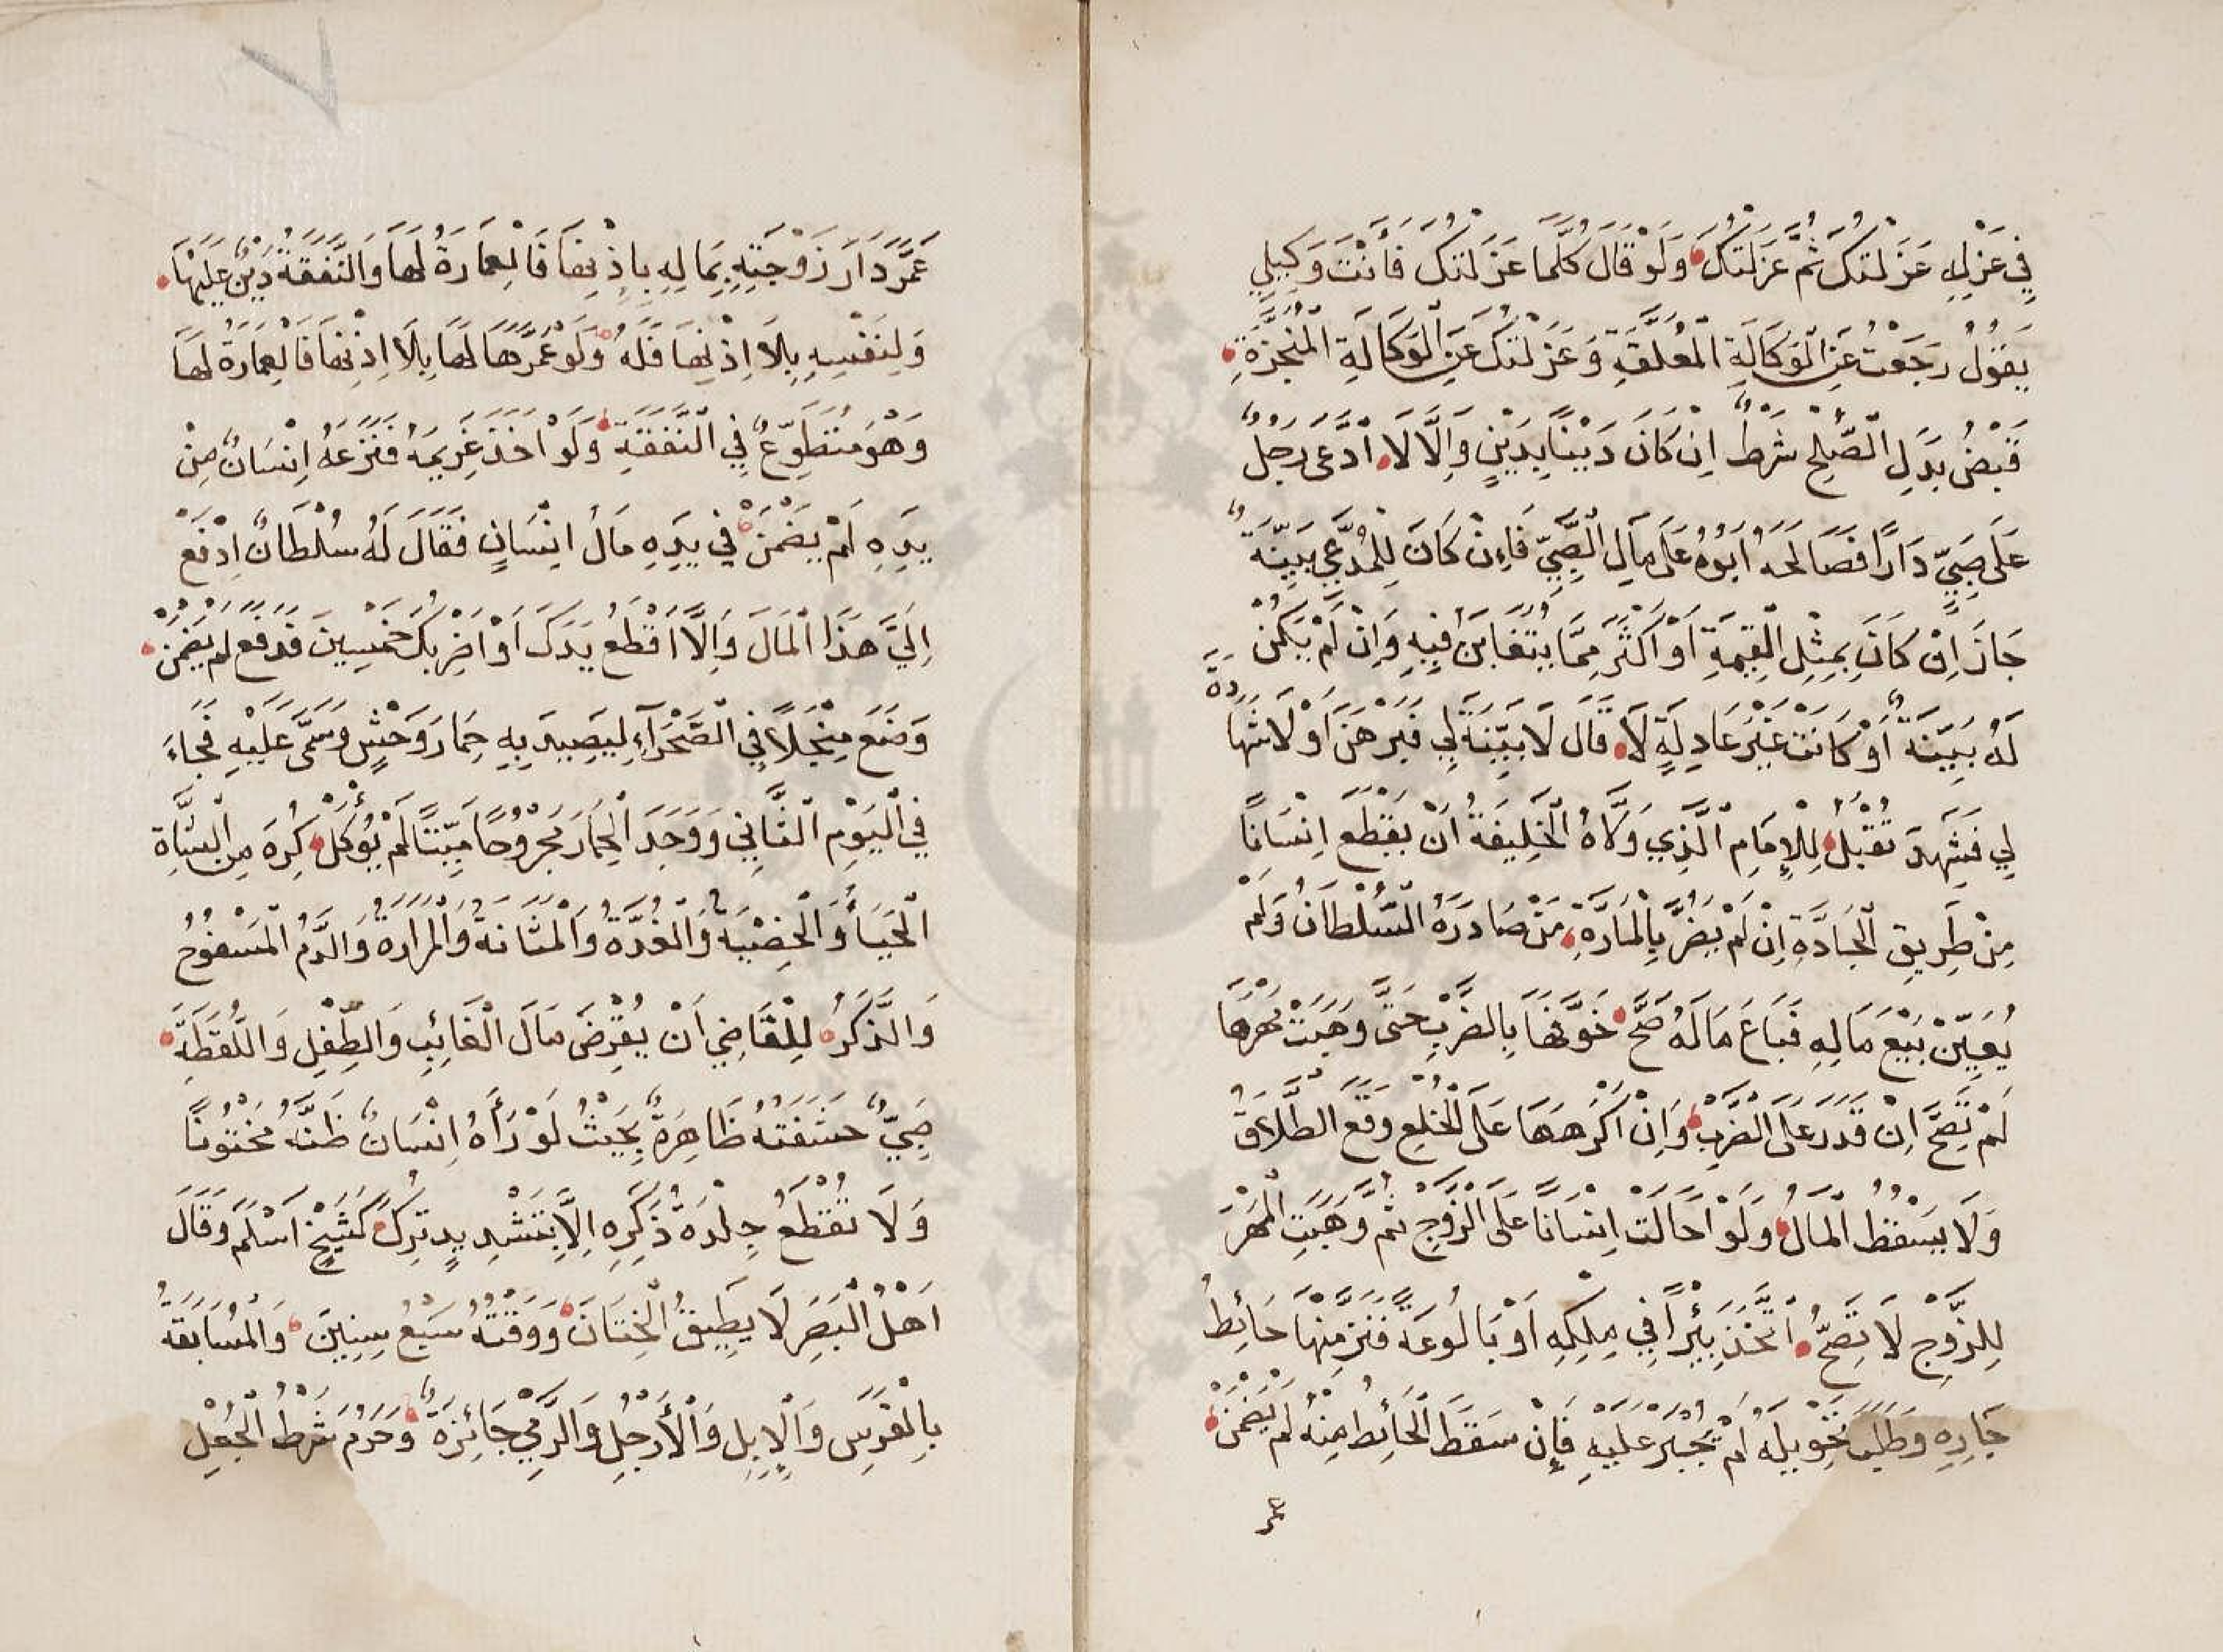 فِي عَزْلِهِ عَزَلْتُكَ ثُمَّ عَزَلْتُكَ وَلَوْ قَالَ كُلَّمَا عَزَلْتُكَ فَأَنْتَ وَكِيلِي
يَقُولُ رَجَعْتُ عَنِ الْوَكَالَةِ الْمُعَلَّقَةِ وَعَزَلْتُكَ عَنِ الْوَكَالَةِ الْمُنَجَّزَةِ
قَبْضُ بَدَلِ الصُّلْحِ شَرْطٌ اِنْ كَانَ دَيْنًا بِدَيْنٍ وَاِلَّا لَا ادَّعَى رَجُلٌ
عَلَى صَبِيٍّ دَارًا فَصَالَحَهُ اَبُوهُ عَلَى مَالِ الصَّبِيِّ فَاِنْ كَانَ لِلْمُدَّعِي بَيِّنَةٌ
جَازَ اِنْ كَانَ بِمِثْلِ الْقِيمَةِ اَوْ اَكْثَرَ مِمَّا يُتَغَابَنُ فِيهِ وَاِنْ لَمْ يَكُنْ
لَهُ بَيِّنَةٌ أَوْ كَانَتْ غَيْرَ عَادِلَةٍ لَا قَالَ لَا بَيِّنَةَ لِي فَبَرْهَنَ اَوْ لَا شَهَادَةَ
لِي فَشَهِدَ تُقْبَلُ لِلْاِمَامِ الَّذِي وَلَّاهُ الْخَلِيفَةُ اَنْ يَقْطَعَ اِنْسَانًا
مِنْ طَرِيقِ الْجَادَّةِ اِنْ لَمْ يَضُرَّ بِالْمَارَّةِ مَنْ صَادَرَهُ السُّلْطَانُ وَلَمْ
يُعَيِّنْ بَيْعَ مَالِهِ فَبَاعَ مَالَهُ صَحَّ خَوَّفَهَا بِالضَّرْبِ حَتَّى وَهَبَتْ مَهْرَهَا
لَمْ تَصِحَّ اِنْ قَدَرَ عَلَى الضَّرْبِ وَاِنْ اَكْرَهَهَا عَلَى الْخُلْعِ وَقَعَ الطَّلَاقُ
وَلَا يَسْقُطُ الْمَالُ وَلَوْ اَحَالَتْ اِنْسَانًا عَلَى الزَّوْجِ ثُمَّ وَهَبَتِ الْمَهْرَ
لِلزَّوْجِ لَا تَصِحُّ اتَّخَذَ بِئْرًا فِي مِلْكِهِ اَوْ بَالُوعَةً فَنَزَّ مِنْهَا حَائِطُ
جَارِهِ وَطَلَبَ تَحْوِيلَهُ لَمْ يُجْبَرْ عَلَيْهِ فَإِنْ سَقَطَ الْحَائِطُ مِنْهُ لَمْ يَضْمَنْ
عمر
عَمَّرَ دَارَ زَوْجَتِهِ بِمَالِهِ بِاِذْنِهَا فَالْعِمَارَةُ لَهَا وَالنَّفَقَةُ دَيْنٌ عَلَيْهَا
وَلِنَفْسِهِ بِلَا اِذْنِهَا فَلَهُ وَلَوْ عَمَّرَهَا لَهَا بِلَا اِذْنِهَا فَالْعِمَارَةُ لَهَا
وَهْوَ مُتَطَوِّعٌ فِي النَّفَقَةِ وَلَوْ اَخَذَ غَرِيمَهُ فَنَزَعَهُ اِنْسَانٌ مِنْ
يَدِهِ لَمْ يَضْمَنْ فِي يَدِهِ مَالُ اِنْسَانٍ فَقَالَ لَهُ سُلْطَانٌ اِدْفَعْ
اِلَيَّ هَذَا الْمَالَ وَاِلَّا اَقْطَعُ يَدَكَ اَوْ اَضْرِبُكَ خَمْسِينَ فَدَفَعَ لَمْ يَضْمَنْ
وَضَعَ مِنْجَلًا فِي الصَّحْرَآءِ لِيَصِيدَ بِهِ حِمَارَ وَحْشٍ وَسَمَّى عَلَيْهِ فَجَاءَ
فِي الْيَوْمِ الثَّانِي وَوَجَدَ الْحِمَارَ مَجْرُوحًا مَيِّتًا لَمْ يُؤْكَلْ كُرِهَ مِنَ الشَّاةِ
الْحَيَاءُ وَالْخِصْيَةُ وَالْغُدَّةُ وَالْمَثَانَةُ وَالْمَرَارَةُ وَالدَّمُ الْمَسْفُوحُ
وَالذَّكَرُ لِلْقَاضِي اَنْ يُقْرِضَ مَالَ الْغَائِبِ وَالطِّفْلِ وَاللُّقَطَةِ
صَبِيٌّ حَشَفَتُهُ ظَاهِرَةٌ بِحَيْثُ لَوْ رَأَهُ اِنْسَانٌ ظَنَّهُ مَخْتُونًا
وَلَا تُقْطَعُ جِلْدَةُ ذَكَرِهِ اِلَّا بِتَشْدِيدٍ تُرِكَ كَشَيْخٍ اَسْلَمَ وَقَالَ
اَهْلُ الْبَصَرِ لَا يُطِيقُ الْخِتَانَ وَوَقْتُهُ سَبْعُ سِنِينَ وَالْمُسَابَقَةُ
بِالْفَرَسِ وَالْاِبِلِ وَالْأَرْجُلِ وَالرَّمْيِ جَائِزَةٌ وَحَرُمَ شَرْطُ الْجُعْلِ